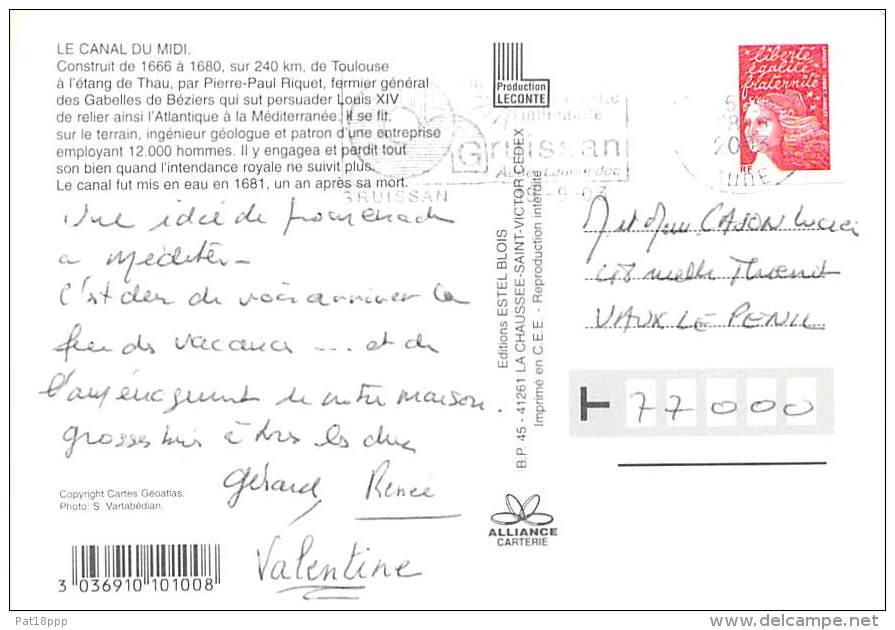 LE CANAL DU MIDI.
Construit de 1666 à 1680, sur 240 km, de Toulouse
à l'étang de Thau, par Pierre-Paul Riquet, fermier général
des Gabelles de Béziers qui sut persuader Louis XIV
de relier ainsi l'Atlantique à la Méditerranée. Il se fit,
sur le terrain, ingénieur géologue et patron d'une entreprise
employant 12.000 hommes. Il y engagea et perdit tout
son bien quand l'intendance royale ne suivit plus.
Le canal fut mis en eau en 1681, un an après sa mort.
Une idée de promenade
a méditer -
C'est de voir arriver la
fin des vacances ... et de
l'aménagement de notre maison.
grosses bises à tous les deux
Gérard, Renée
Valentine
Copyright Cartes Géoatlas.
Photo: S. Vartabédian.
3 036910 101008
Production
LECONTE
Editions ESTEL BLOIS
B.P. 45 - 41261 LA CHAUSSEE-SAINT-VICTOR CEDEX
Imprimé en C.E.E. - Reproduction interdite
ALLIANCE
CARTERIE
liberté
égalité
fraternité
RF
Gruissan
Aude Languedoc
GRUISSAN
-9-03
2003
AUDE
M et Mme CAJON
48 ruelle
VAUX LE PENIL
T 77000
Pat18ppp
delcampe.net